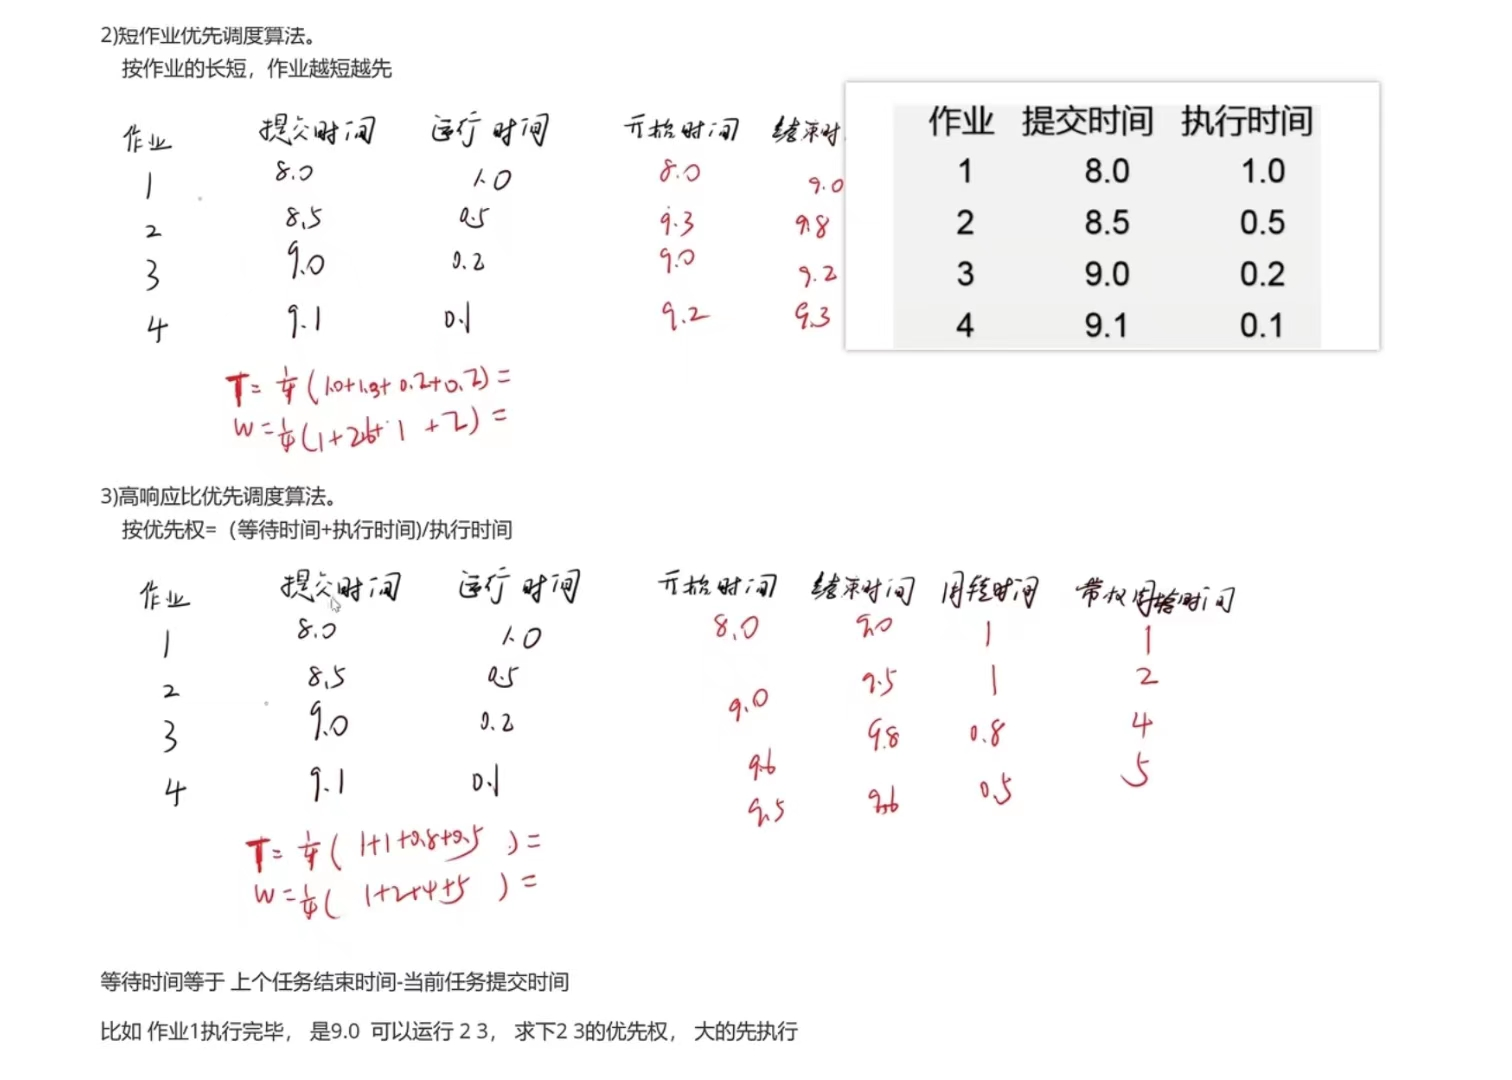 2)短作业优先调度算法。
按作业的长短，作业越短越先
作业 提交时间 运行时间 开始时间 结束时
1 8.0 1.0 8.0 9.0
2 8.5 0.5 9.3 9.8
3 9.0 0.2 9.0 9.2
4 9.1 0.1 9.2 9.3
T= 1/4 (1.0+1.3+0.2+0.2)=
W=1/4(1+2.6+1+2)=
作业 提交时间 执行时间
1 8.0 1.0
2 8.5 0.5
3 9.0 0.2
4 9.1 0.1
3)高响应比优先调度算法。
按优先权=（等待时间+执行时间)/执行时间
作业 提交时间 运行时间 开始时间 结束时间 周转时间 带权周转时间
1 8.0 1.0 8.0 9.0 1 1
2 8.5 0.5 9.0 9.5 1 2
3 9.0 0.2 9.6 9.8 0.8 4
4 9.1 0.1 9.5 9.6 0.5 5
T= 1/4 ( 1+1+0.8+0.5 )=
W=1/4( 1+2+4+5 )=
等待时间等于 上个任务结束时间-当前任务提交时间
比如 作业1执行完毕， 是9.0 可以运行 2 3， 求下2 3的优先权， 大的先执行